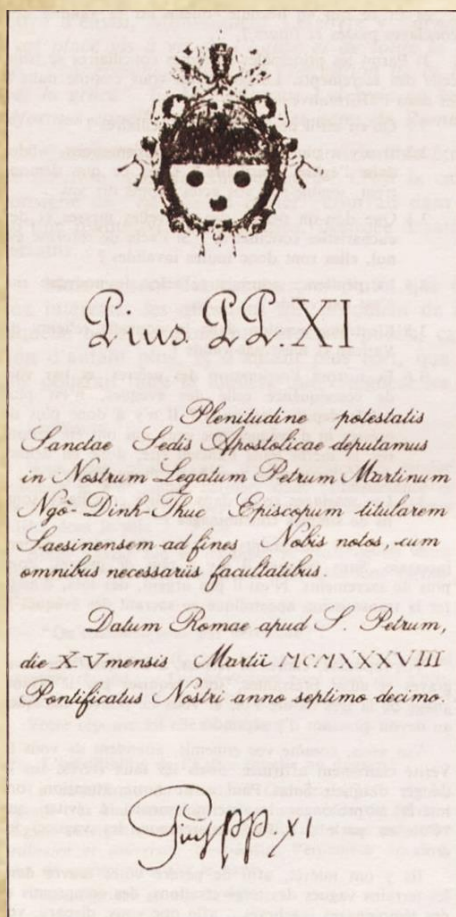 Pius PP. XI
Plenitudine potestatis
Sanctae Sedis Apostolicae deputamus
in Nostrum Legatum Petrum Martinum
Ngô-Dinh-Thuc Episcopum titularem
Saesinensem ad fines Nobis notos, cum
omnibus necessariis facultatibus.
Datum Romae apud S. Petrum,
die XV mensis Martii MCMXXXVIII
Pontificatus Nostri anno septimo decimo.
Pius PP. XI